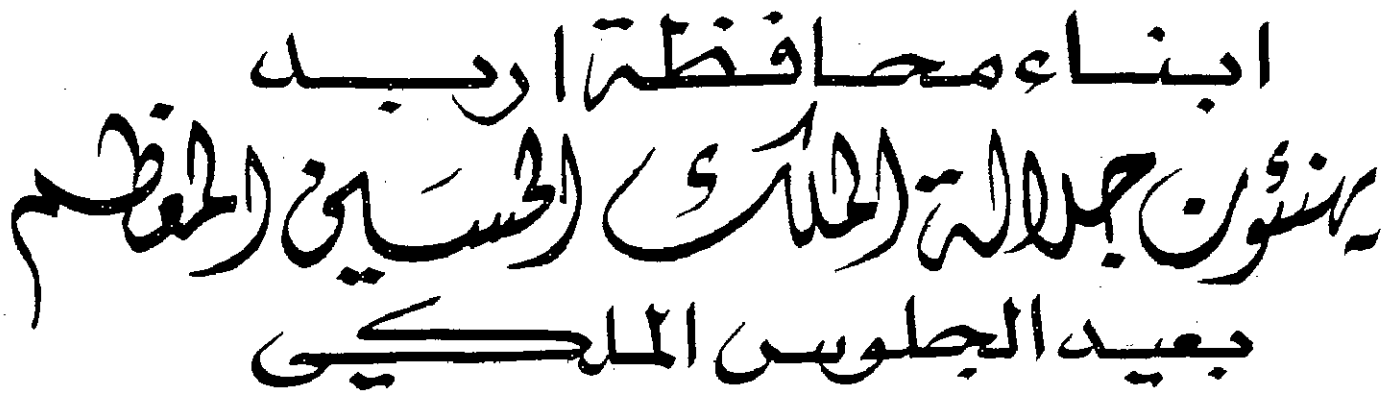 ابناء محافظة اربد
يهنئون جلالة الملك الحسين المعظم
بعيد الجلوس الملكي